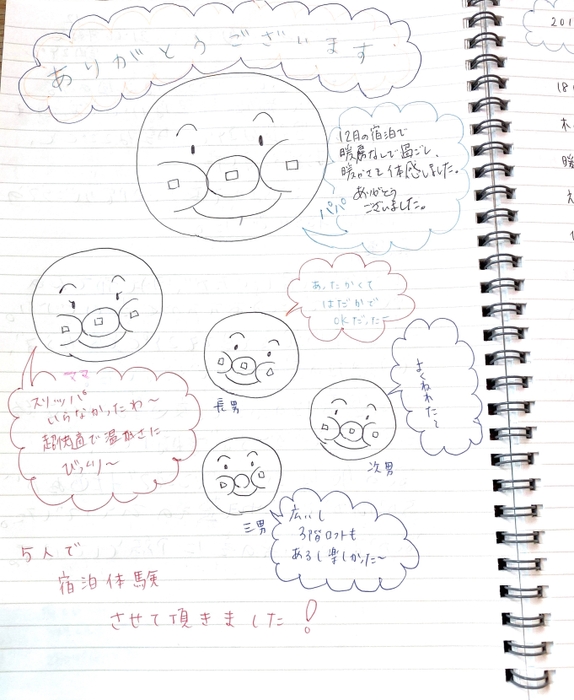 ありがとうございます。
12月の宿泊で
暖房なしで過ごし、
暖かさを体感しました。
ありがとう
ございました。
パパ
あったかくて
はだかで
OKだった〜
ママ
スリッパ
いらなかったわ〜
超快適で温かさに
びっくり〜
長男
よくねれた〜
次男
三男
広いし
3階ロフトも
あるし楽しかった〜
5人で
宿泊体験
させて頂きました!
201
18